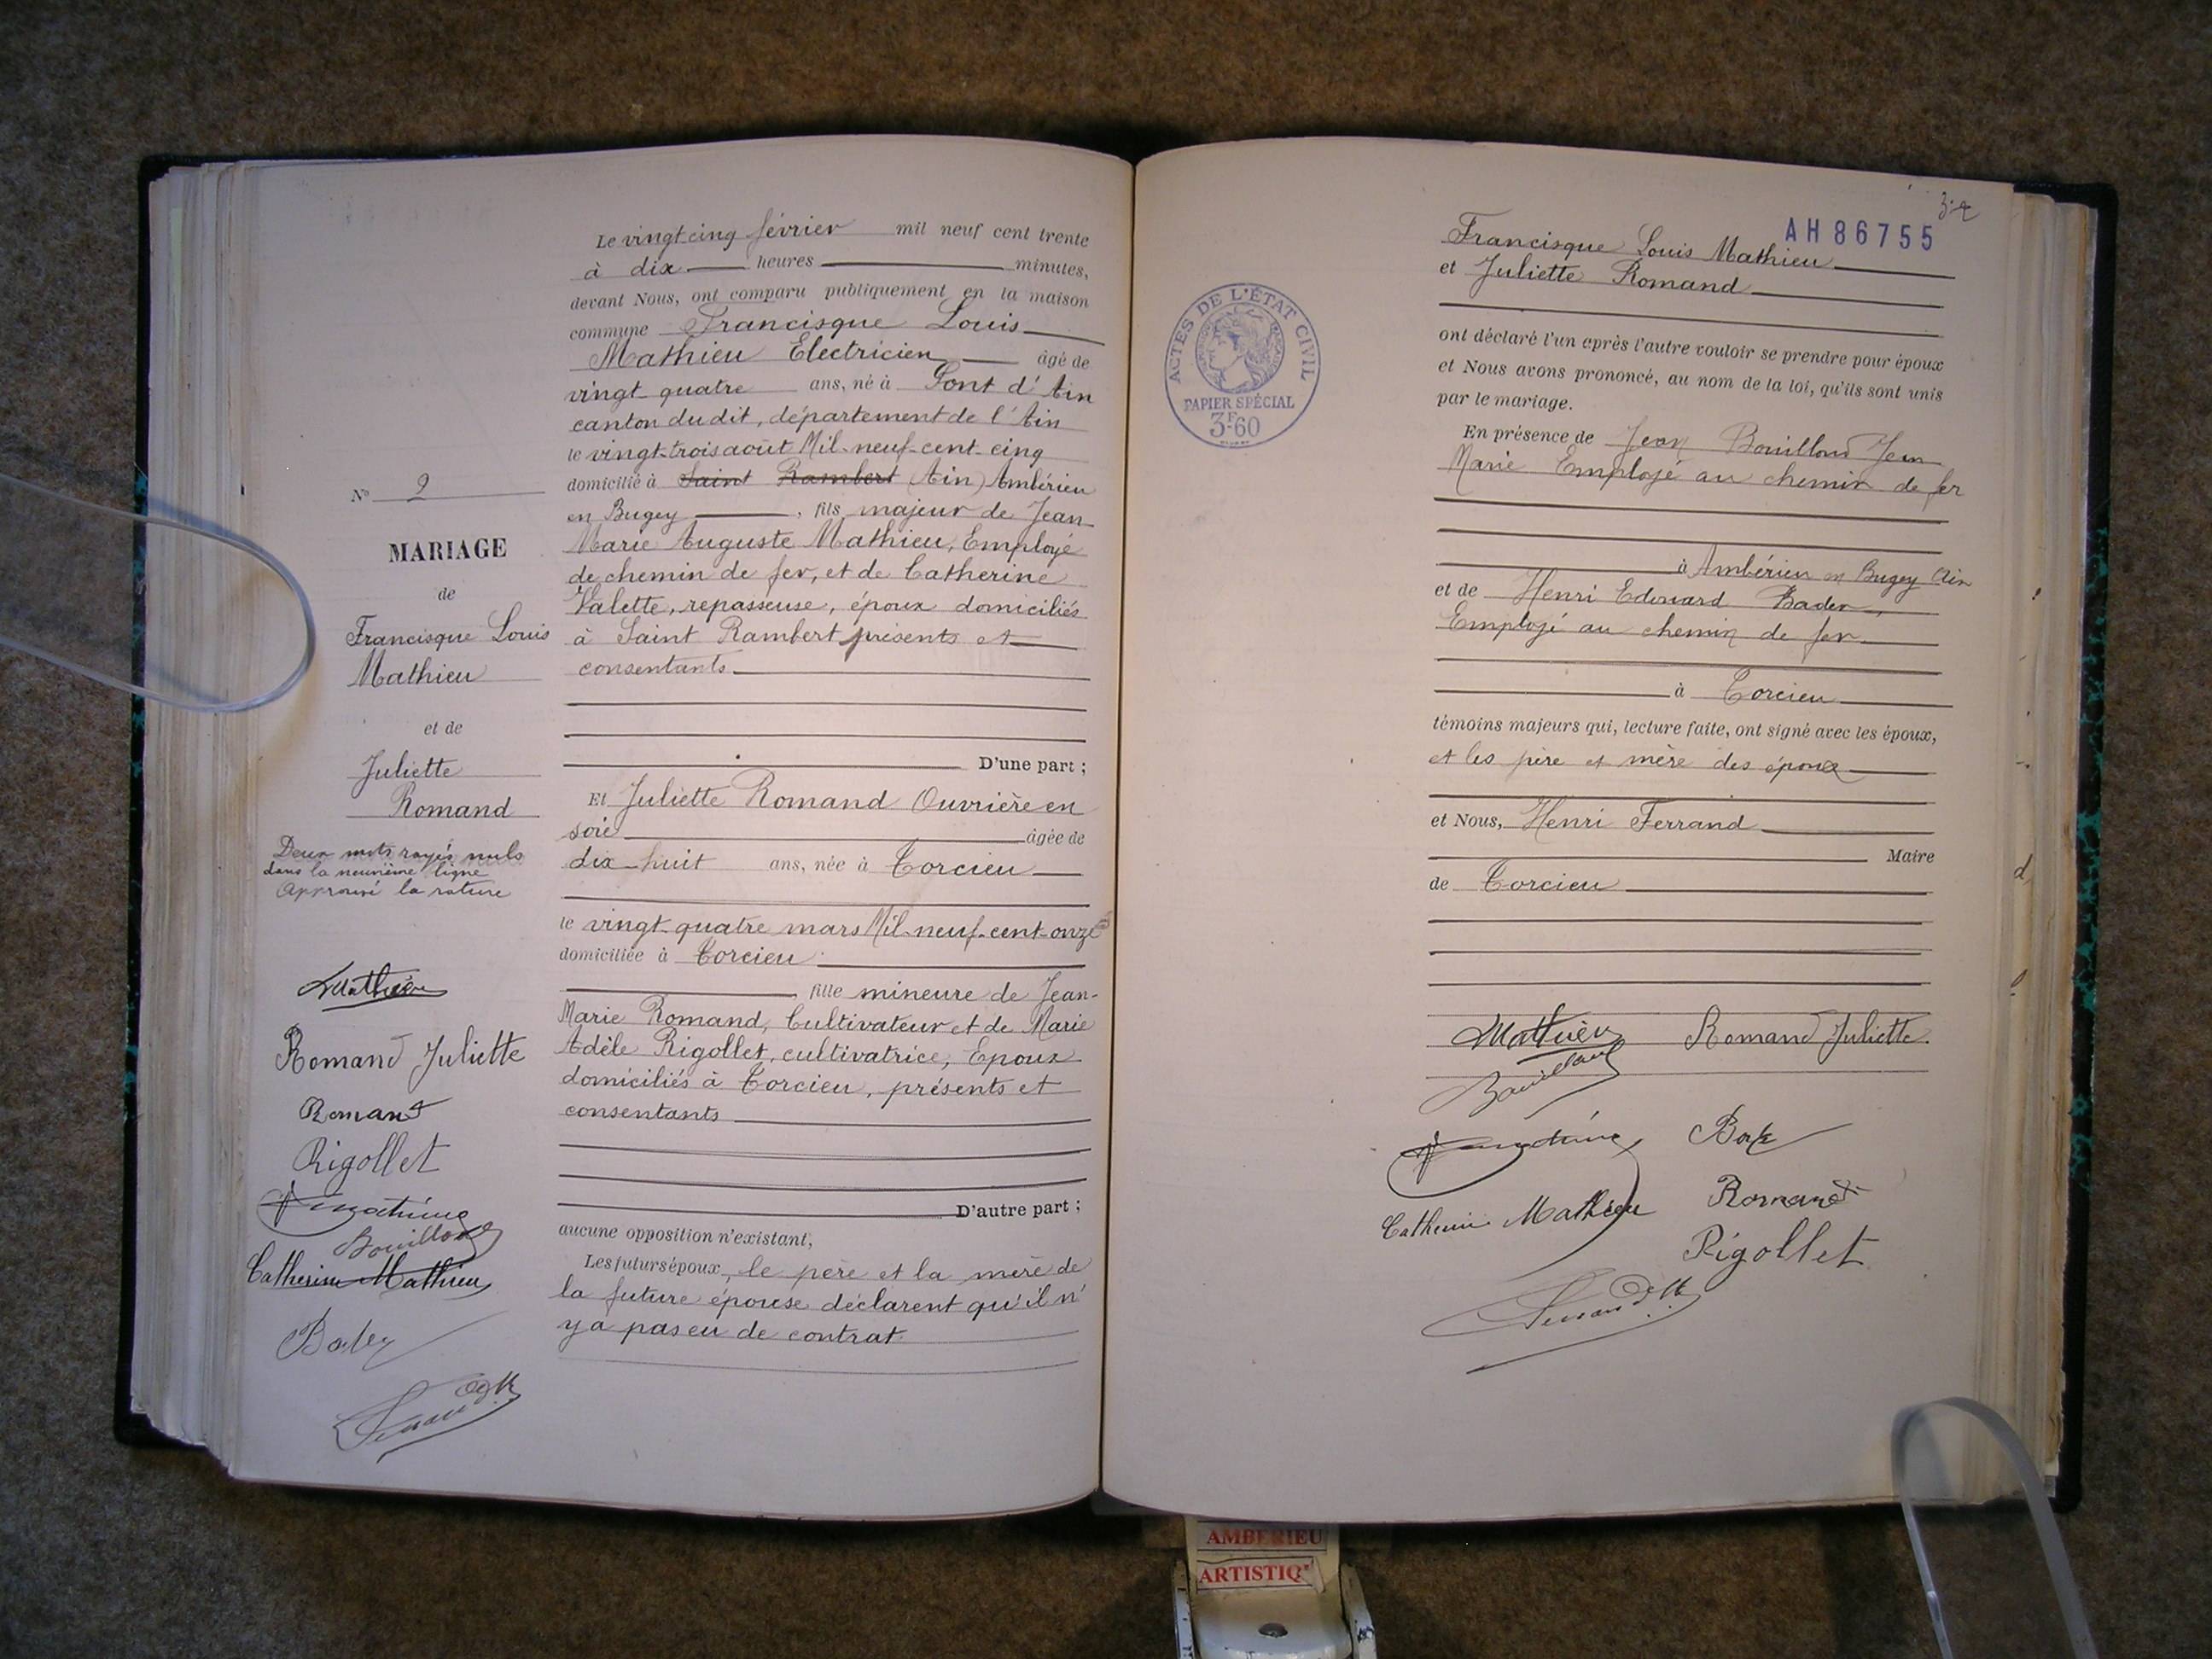 Le vingt cinq février mil neuf cent trente
à dix heures minutes,
devant Nous, ont comparu publiquement en la maison
commune Francisque Louis
Mathieu Electricien âgé de
vingt quatre ans, né à Pont d'Ain
canton du dit, département de l'Ain
le vingt-trois août Mil-neuf-cent-cinq
domicilié à Saint Rambert (Ain) Ambérieu
en Bugey, fils majeur de Jean-
Marie Auguste Mathieu, Employé
de chemin de fer, et de Catherine
Valette, repasseuse, époux domiciliés
à Saint Rambert présents et
consentants
D'une part ;
Et Juliette Romand Ouvrière en
soie âgée de
dix-huit ans, née à Torcieu
le vingt-quatre mars Mil-neuf-cent-onze
domiciliée à Torcieu
, fille mineure de Jean-
Marie Romand, Cultivateur et de Marie
Adèle Rigollet, cultivatrice, Epoux
domiciliés à Torcieu, présents et
consentants
D'autre part ;
aucune opposition n'existant,
Les futurs époux, le père et la mère de
la future épouse déclarent qu'il n'
y a pas eu de contrat.
N° 2
MARIAGE
de
Francisque Louis
Mathieu
et de
Juliette
Romand
Deux mots rayés nuls
dans la neuvième ligne
Approuvé la rature
Mathieu
Romand Juliette
Romand
Rigollet
Bouilloud
Catherine Mathieu
Bader
AH 86755
Francisque Louis Mathieu
et Juliette Romand
ont déclaré l'un après l'autre vouloir se prendre pour époux
et Nous avons prononcé, au nom de la loi, qu'ils sont unis
par le mariage.
En présence de Jean Bouilloud Jean
Marie Employé au chemin de fer
à Ambérieu en Bugey Ain
et de Henri Edouard Bader,
Employé au chemin de fer
à Torcieu
témoins majeurs qui, lecture faite, ont signé avec les époux,
et les père et mère des époux
et Nous, Henri Ferrand
Maire
de Torcieu
Mathieu Romand Juliette.
Bouilloud
Catherine Mathieu Romand
Rigollet
ACTES DE L'ÉTAT CIVIL
PAPIER SPÉCIAL
3F60
AMBERIEU
ARTISTIQ'